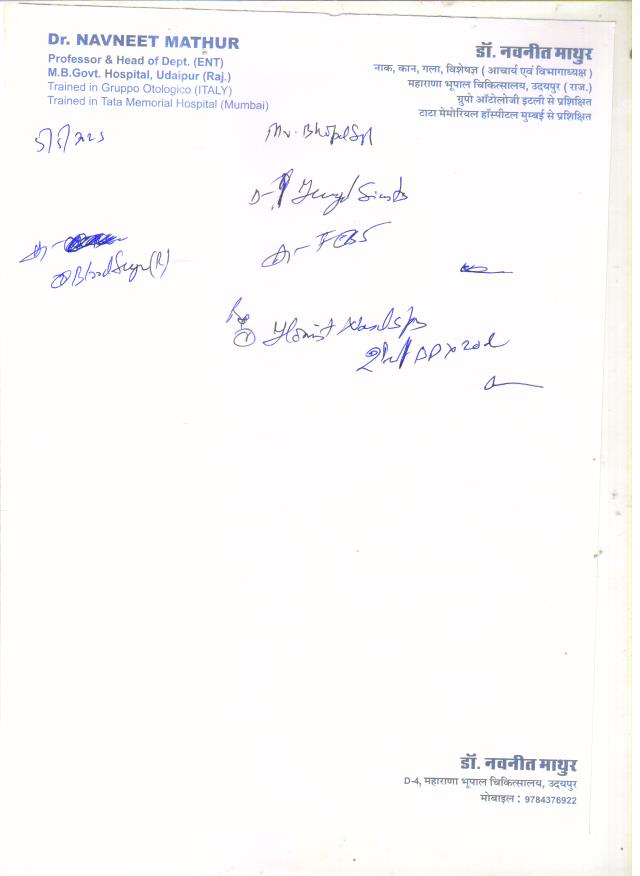 Dr. NAVNEET MATHUR
Professor & Head of Dept. (ENT)
M.B.Govt. Hospital, Udaipur (Raj.)
Trained in Gruppo Otologico (ITALY)
Trained in Tata Memorial Hospital (Mumbai)
डॉ. नवनीत माथुर
नाक, कान, गला, विशेषज्ञ ( आचार्य एवं विभागाध्यक्ष )
महाराणा भूपाल चिकित्सालय, उदयपुर (राज.)
ग्रुपो ऑटोलोजी इटली से प्रशिक्षित
टाटा मेमोरियल हॉस्पीटल मुम्बई से प्रशिक्षित
5/5/2025
Mr. Bhopal
FBS
Blood Sugar (R)
①
डॉ. नवनीत माथुर
D-4, महाराणा भूपाल चिकित्सालय, उदयपुर
मोबाइल : 9784376922